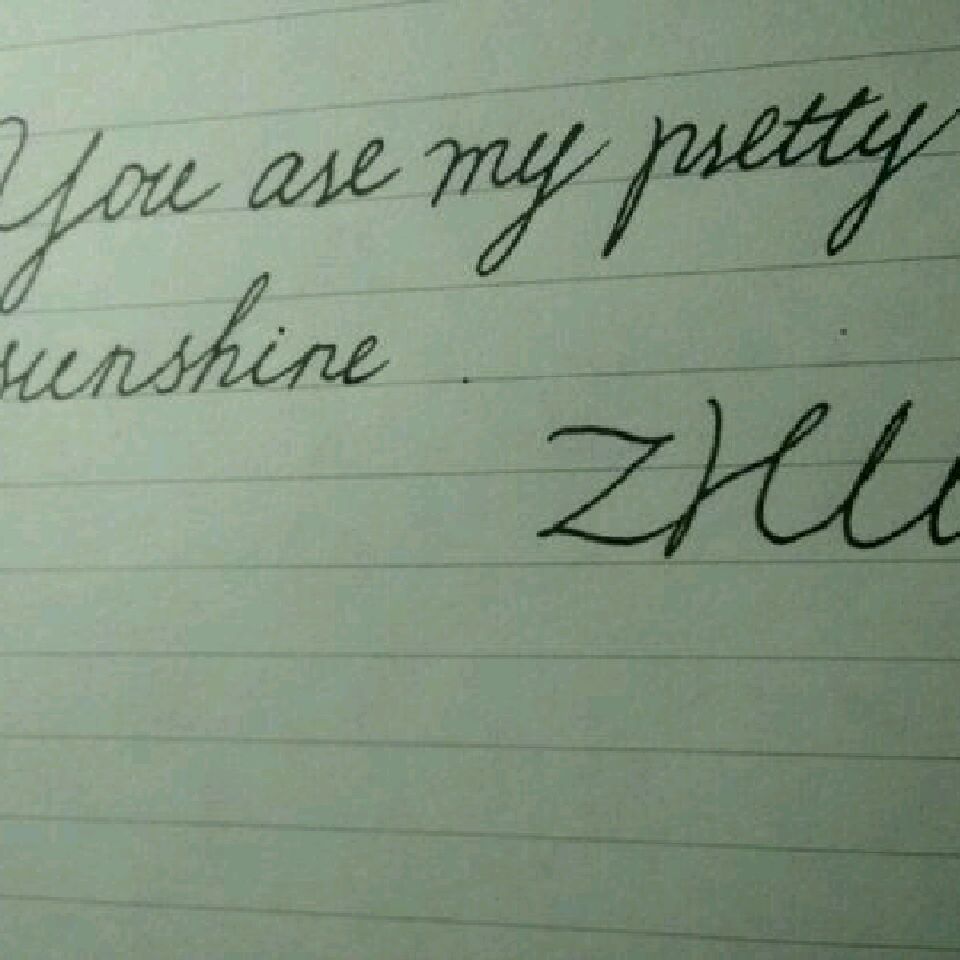 You are my pretty
sunshine.
ZHU